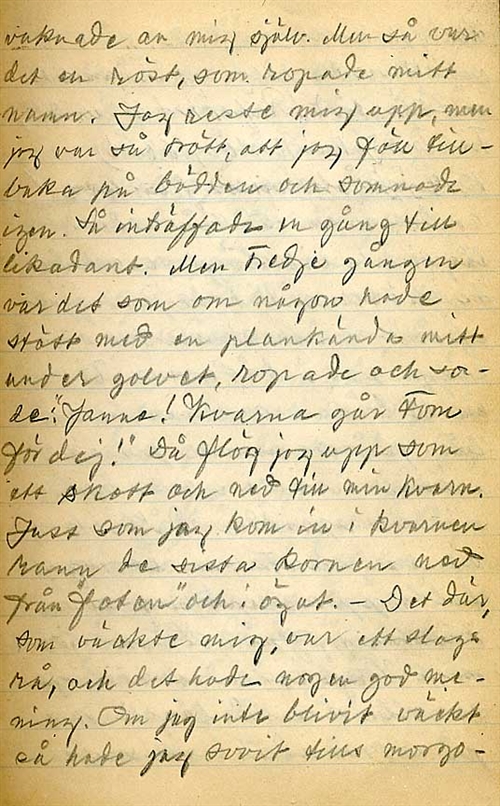 vaknade av mig själv. Men så var
det en röst, som ropade mitt
namn. Jag reste mig upp, men
jag var så trött, att jag föll till-
baka på bädden och somnade
igen. Så inträffade en gång till
likadant. Men tredje gången
var det som om någon hade
stött med en plankända mitt
under golvet, ropade och sa-
de: "Janne! Kvarna går tom
för dej!" Då flög jag upp som
ett skott och ned till min kvarn.
Just som jag kom in i kvarnen
rann de sista kornen ned
från "fatan" och i ögat. – Det där,
som väckte mig, var ett slags
rå, och det hade nog en god me-
ning. Om jag inte blivit väckt
så hade jag sovit tills morgo-